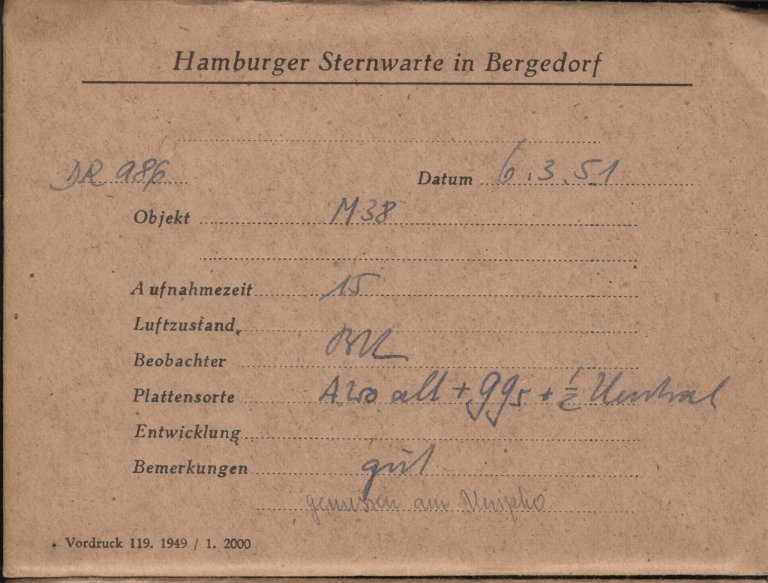 Hamburger Sternwarte in Bergedorf
DR 986 Datum 6.3.51
Objekt M38
Aufnahmezeit 15
Luftzustand
Beobachter
Plattensorte alt + gg5 + ½ Neutral
Entwicklung
Bemerkungen gut
gemessen am
Vordruck 119. 1949 / 1. 2000